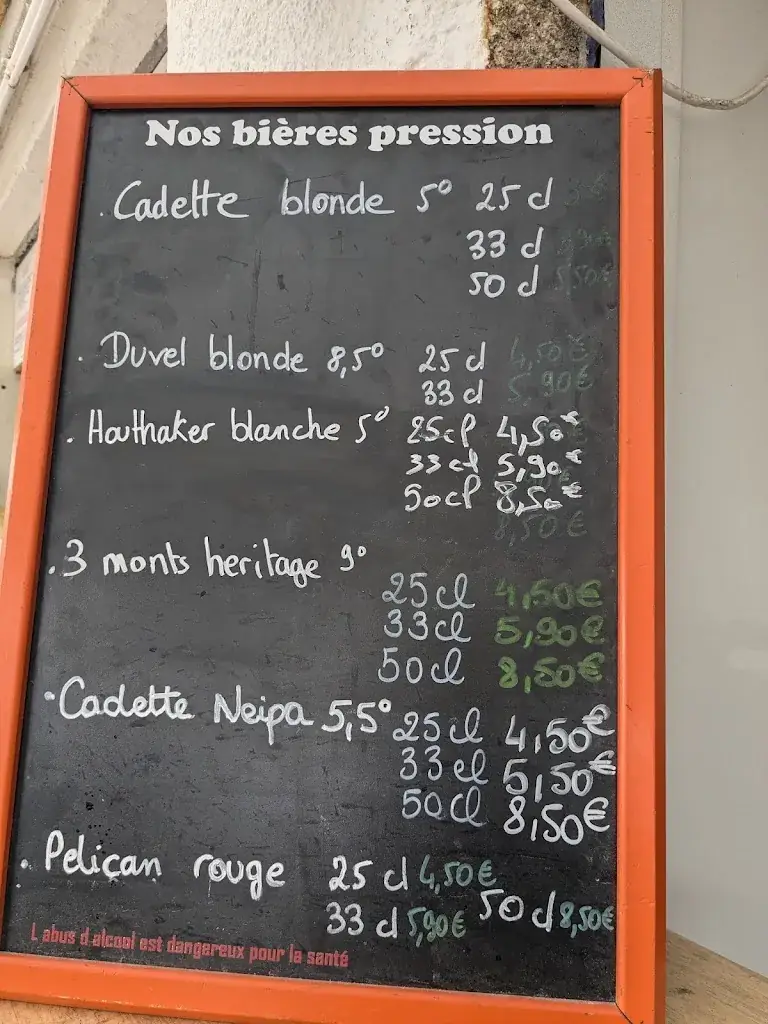 Nos bières pression
. Cadette blonde 5° 25 cl
33 cl
50 cl 5,50€
. Duvel blonde 8,5° 25 cl 4,50€
33 cl 5,90€
. Houthaker blanche 5° 25cl 4,50€
33 cl 5,90€
50cl 8,50€
8,50€
. 3 monts heritage 9°
25cl 4,50€
33cl 5,90€
50cl 8,50€
. Cadette Neipa 5,5° 25cl 4,50€
33cl 5,50€
50cl 8,50€
. Peliçan rouge 25 cl 4,50€
33 cl 5,90€ 50 cl 8,50€
L abus d alcool est dangereux pour la santé